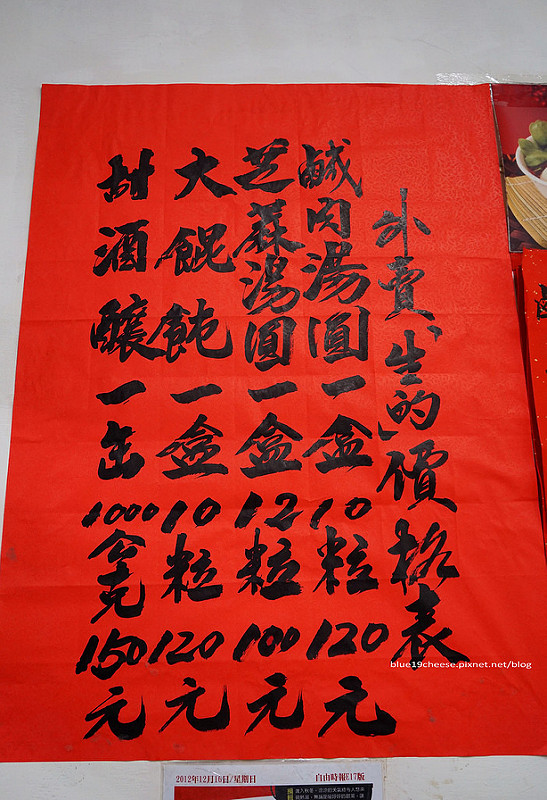 外賣「生的」價格表
鹹肉湯圓一盒10粒120元
芝蔴湯圓一盒12粒100元
大餛飩一盒10粒120元
甜酒釀一缶1000公克150元
blue19cheese.pixnet.net/blog
2012年12月16日/星期日
自由時報E17版